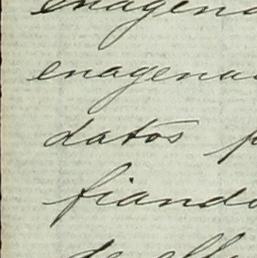 enagena
enagena
datos p
fiando
de ell